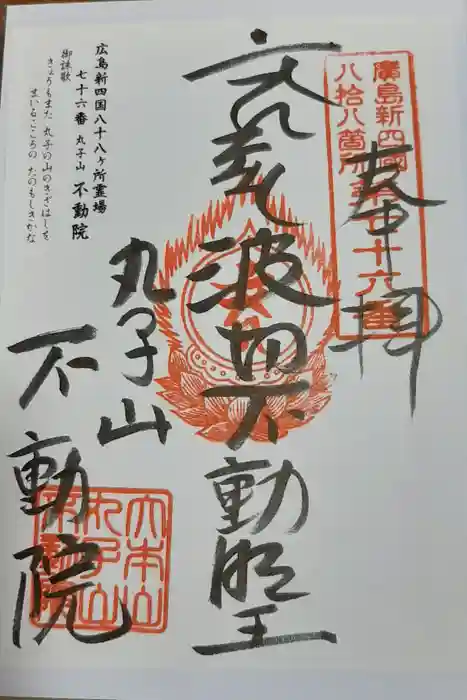 廣島新四國
八拾八箇所第七十六番
奉拝
交通安全
波切不動明王
丸子山
不動院
大本山
丸子山
不動院
広島新四国八十八ヶ所霊場
七十六番 丸子山 不動院
御詠歌
きょうもまた 丸子の山のきざはしを
まいるこころの たのもしきかな